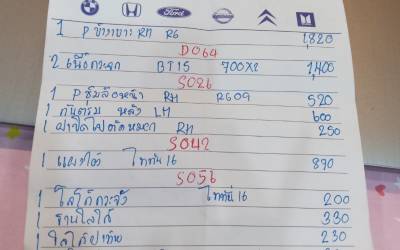 Ford
1 P ข้างเบาะ RH R6 1,820
D064
2 เนื้อกระจก BT15 700X2 1,400
S026
1 P ซุ้มล้อหน้า RH R609 520
1 กันชุม หลัง LH 600
1 ฝาไฟตัดหมอก RH 250
S042
1 แผงใต้ ไททัน 16 890
S056
1 โลโก้กระจัง ไททัน 16 200
1 ฐานโลโก้ 330
230